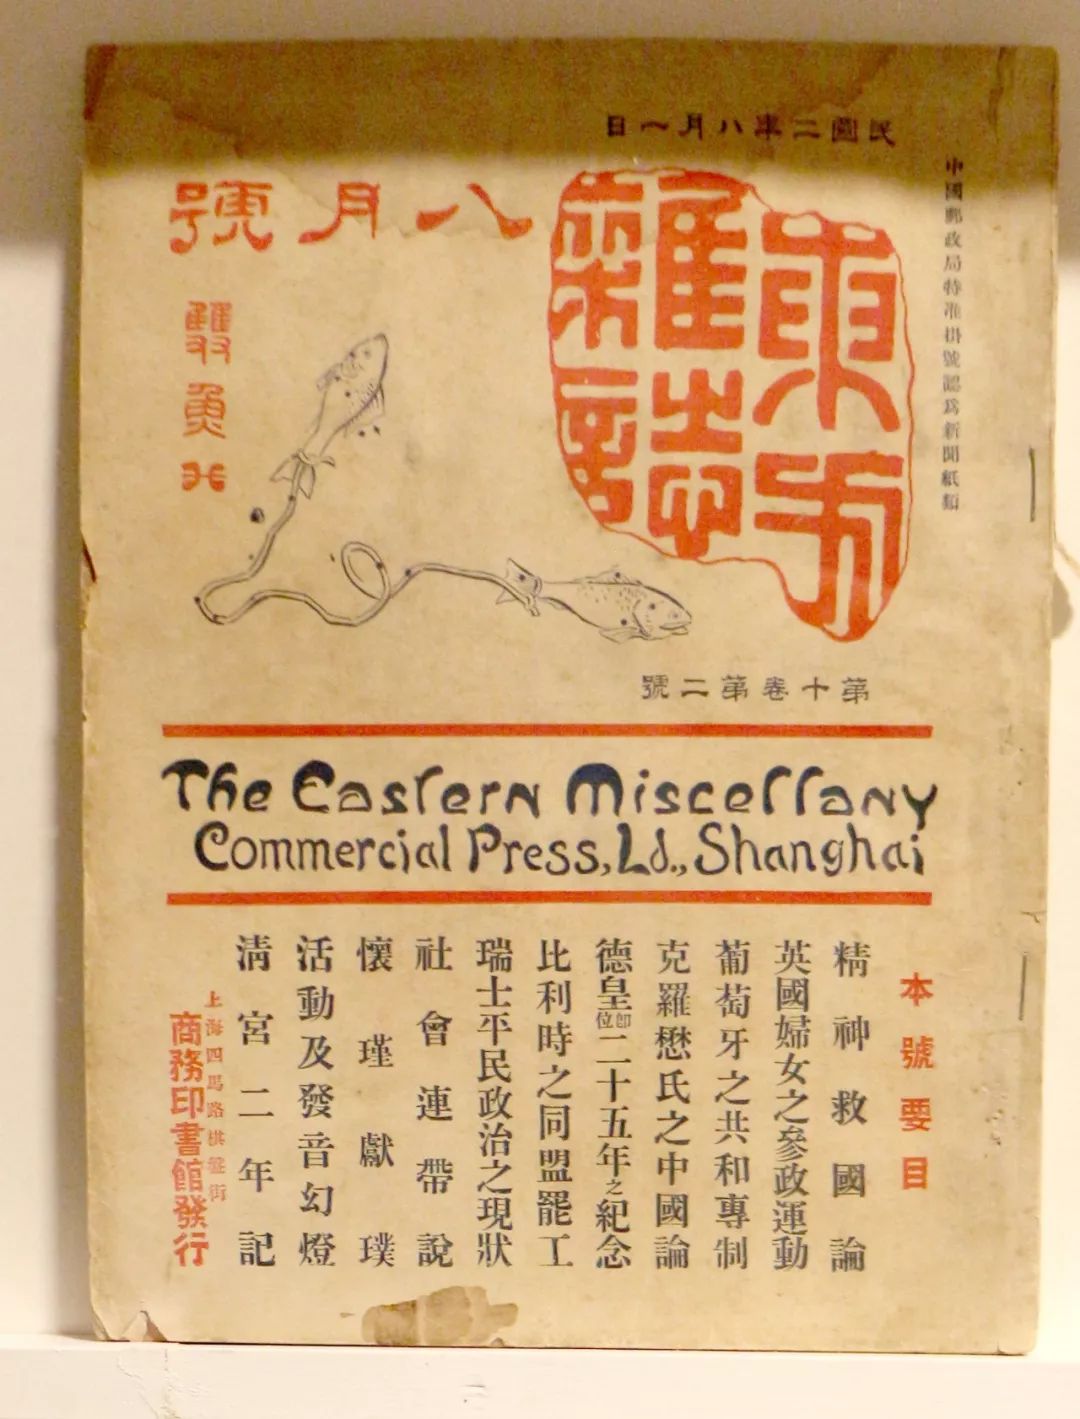 民國二年八月一日
中國郵政局特准掛號認爲新聞紙類
八月號
東方
雜誌
雙魚
第十卷第二號
The Eastern Miscellany
Commercial Press, Ld., Shanghai
本號要目
精神救國論
英國婦女之參政運動
葡萄牙之共和專制
克羅懋氏之中國論
德皇卽位二十五年之紀念
比利時之同盟罷工
瑞士平民政治之現狀
社會連帶說
懷瑾獻璞
活動及發音幻燈
清宮二年記
上海四馬路棋盤街
商務印書館發行